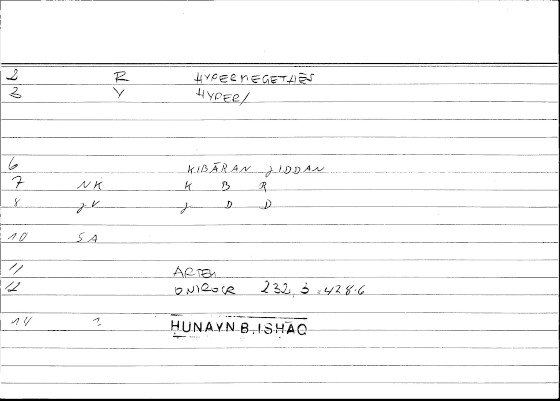 2 R HYPERMEGETHES
3 V HYPER/
6 KIBĀRAN ǧIDDAN
7 NK K B R
8 ǧV ǧ D D
10 SA
11 ARTEM
12 ONIROCR 232, 3 = 428.6
14 ? HUNAYN B. ISHAQ